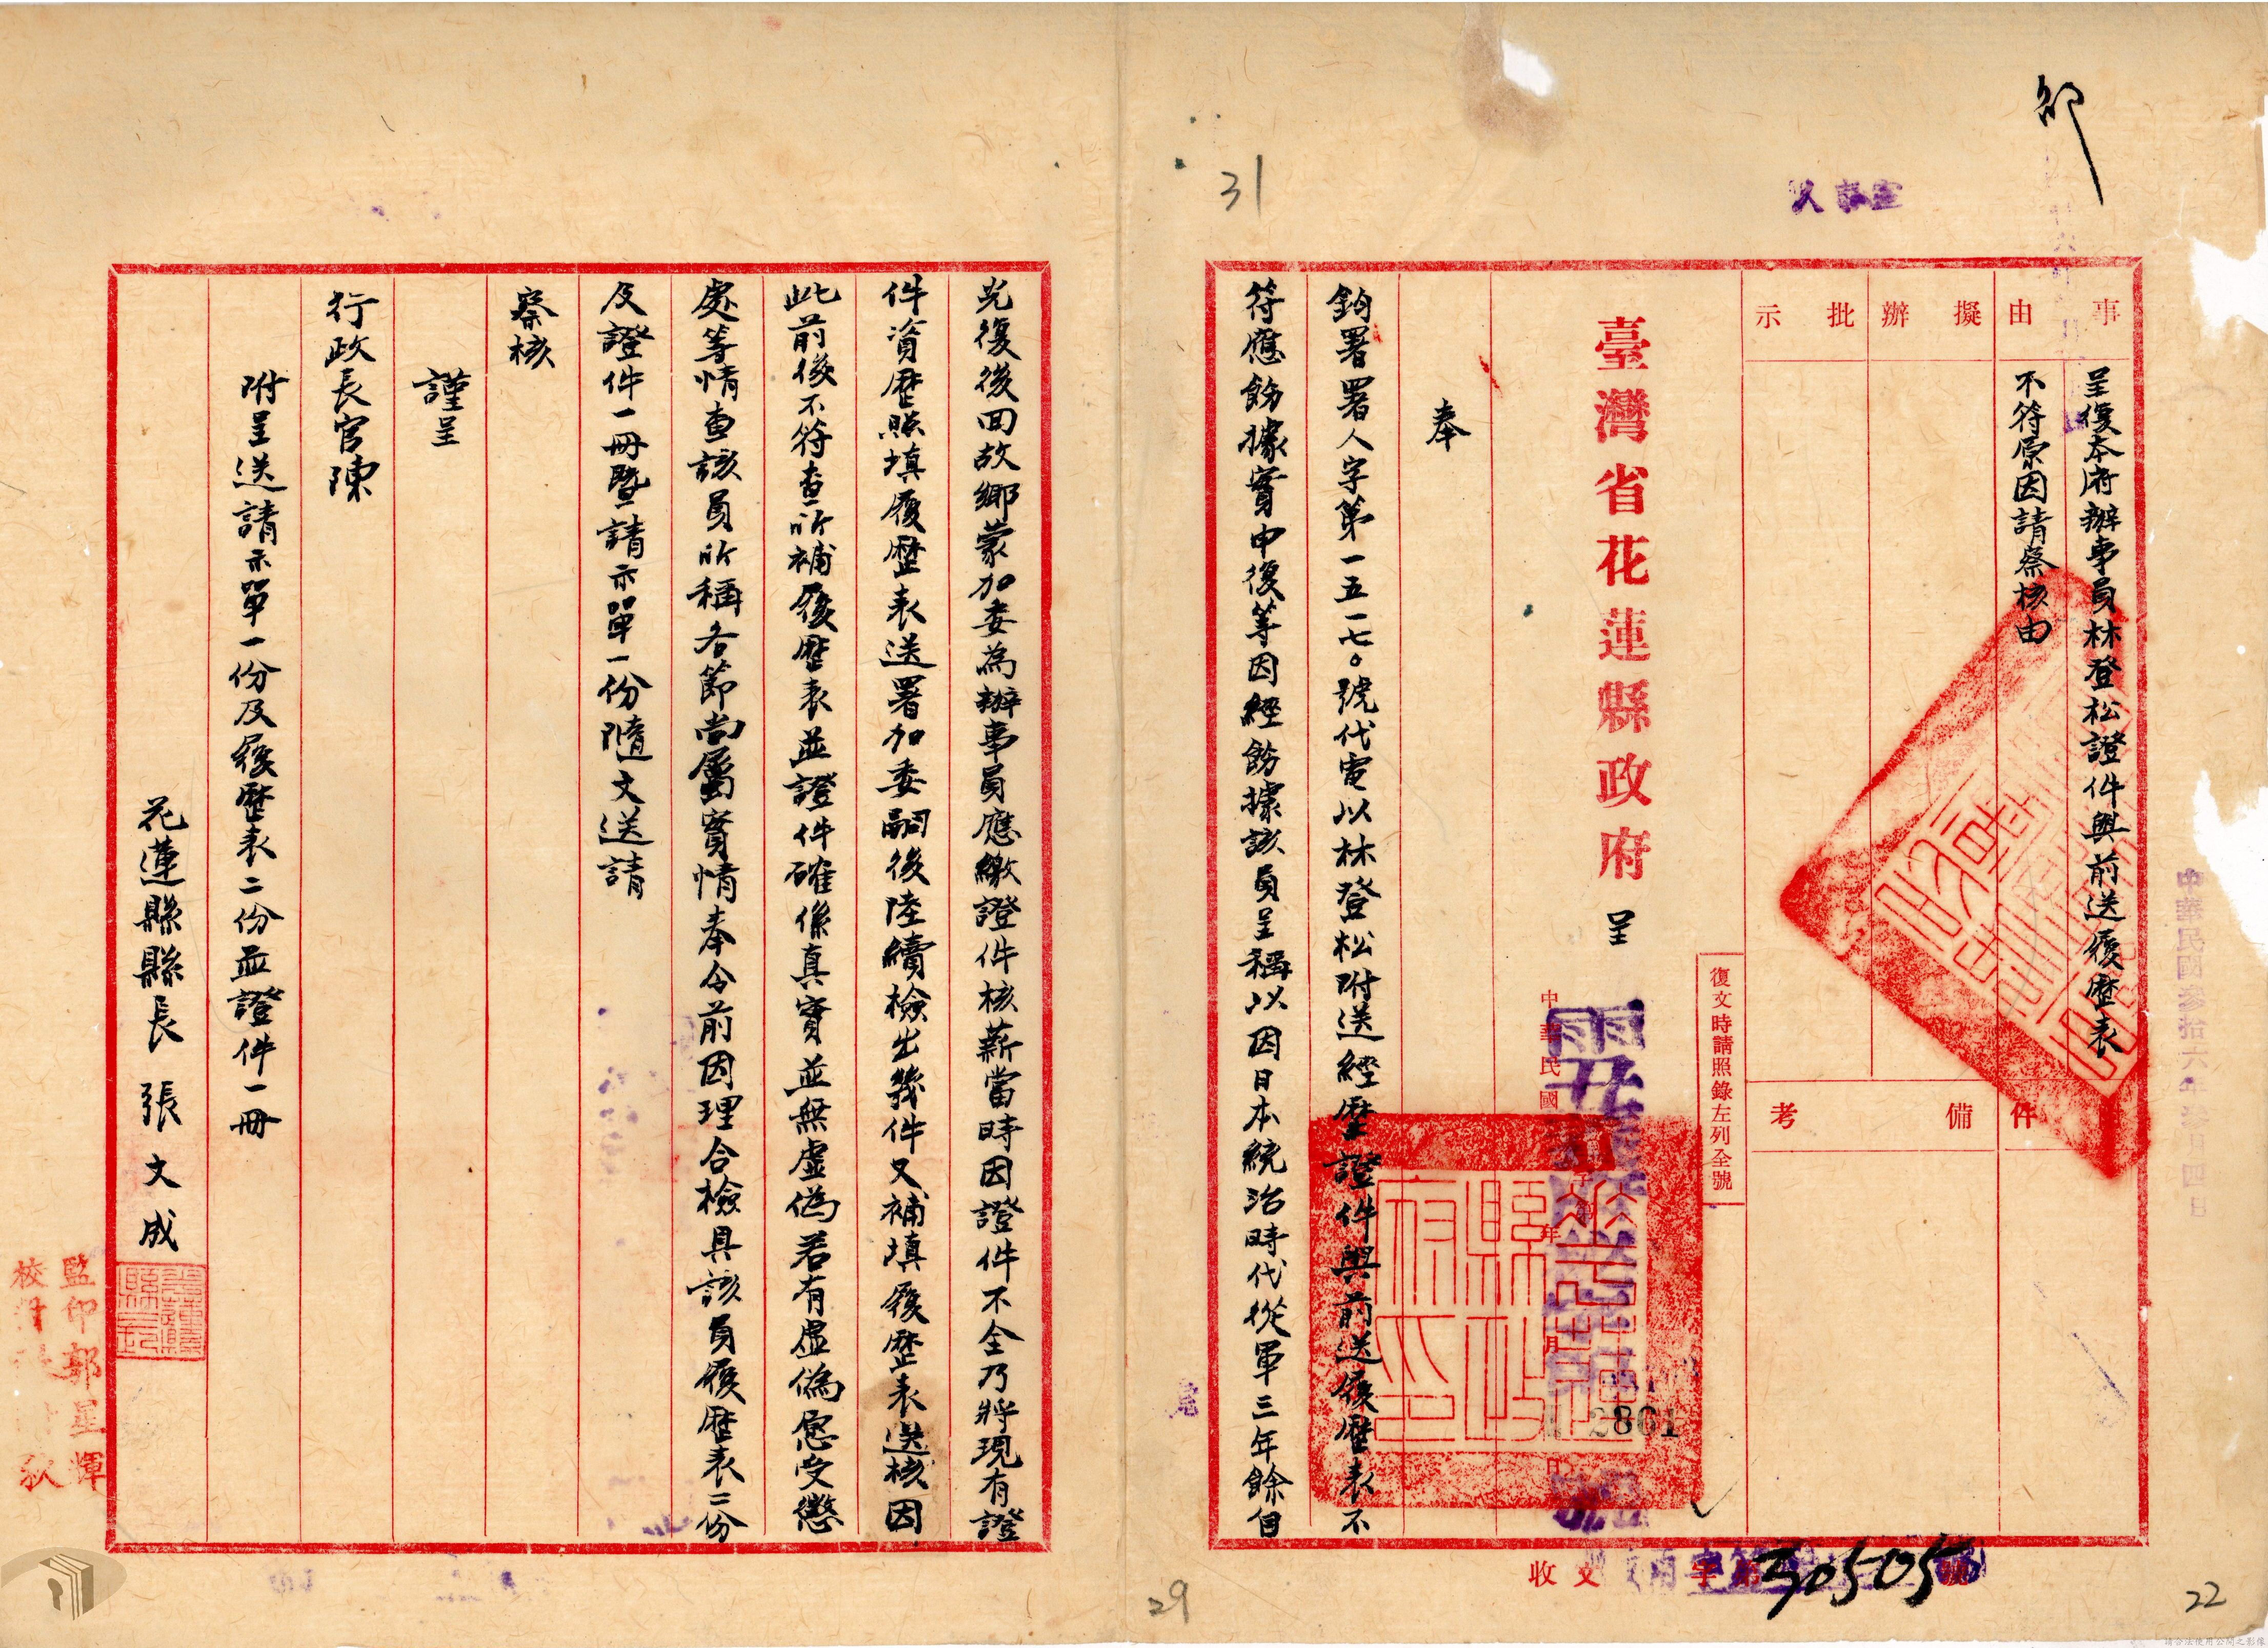 邹
31
人事室
事由
擬辦
批示
呈復本府辦事員林登松證件與前送履歷表
不符原因請察核由
件
備考
中華民國參拾六年參月四日
臺灣省花蓮縣政府 呈
復文時請照錄左列全號
中華民國 年 月 日
2861
奉
鈞署署人字第一五一七〇號代電以林登松附送經歷證件與前送履歷表不
符應飭據實申復等因經飭據該員呈稱以因日本統治時代從軍三年餘自
光復後回故鄉蒙加委為辦事員應繳證件核薪當時因證件不全乃將現有證
件資歷照填履歷表送署加委嗣後陸續檢出幾件又補填履歷表送核因
此前後不符查所補履歷表並證件確係真實並無虛偽若有虛偽愿受懲
處等情查該員所稱各節尚屬實情奉令前因理合檢具該員履歷表二份
及證件一冊暨請示單一份隨文送請
察核
謹呈
行政長官陳
附呈送請示單一份及履歷表二份並證件一冊
花蓮縣縣長 張文成
監印郭星輝
校對
收文 字第30505號
29
22
請合法使用公開之影像